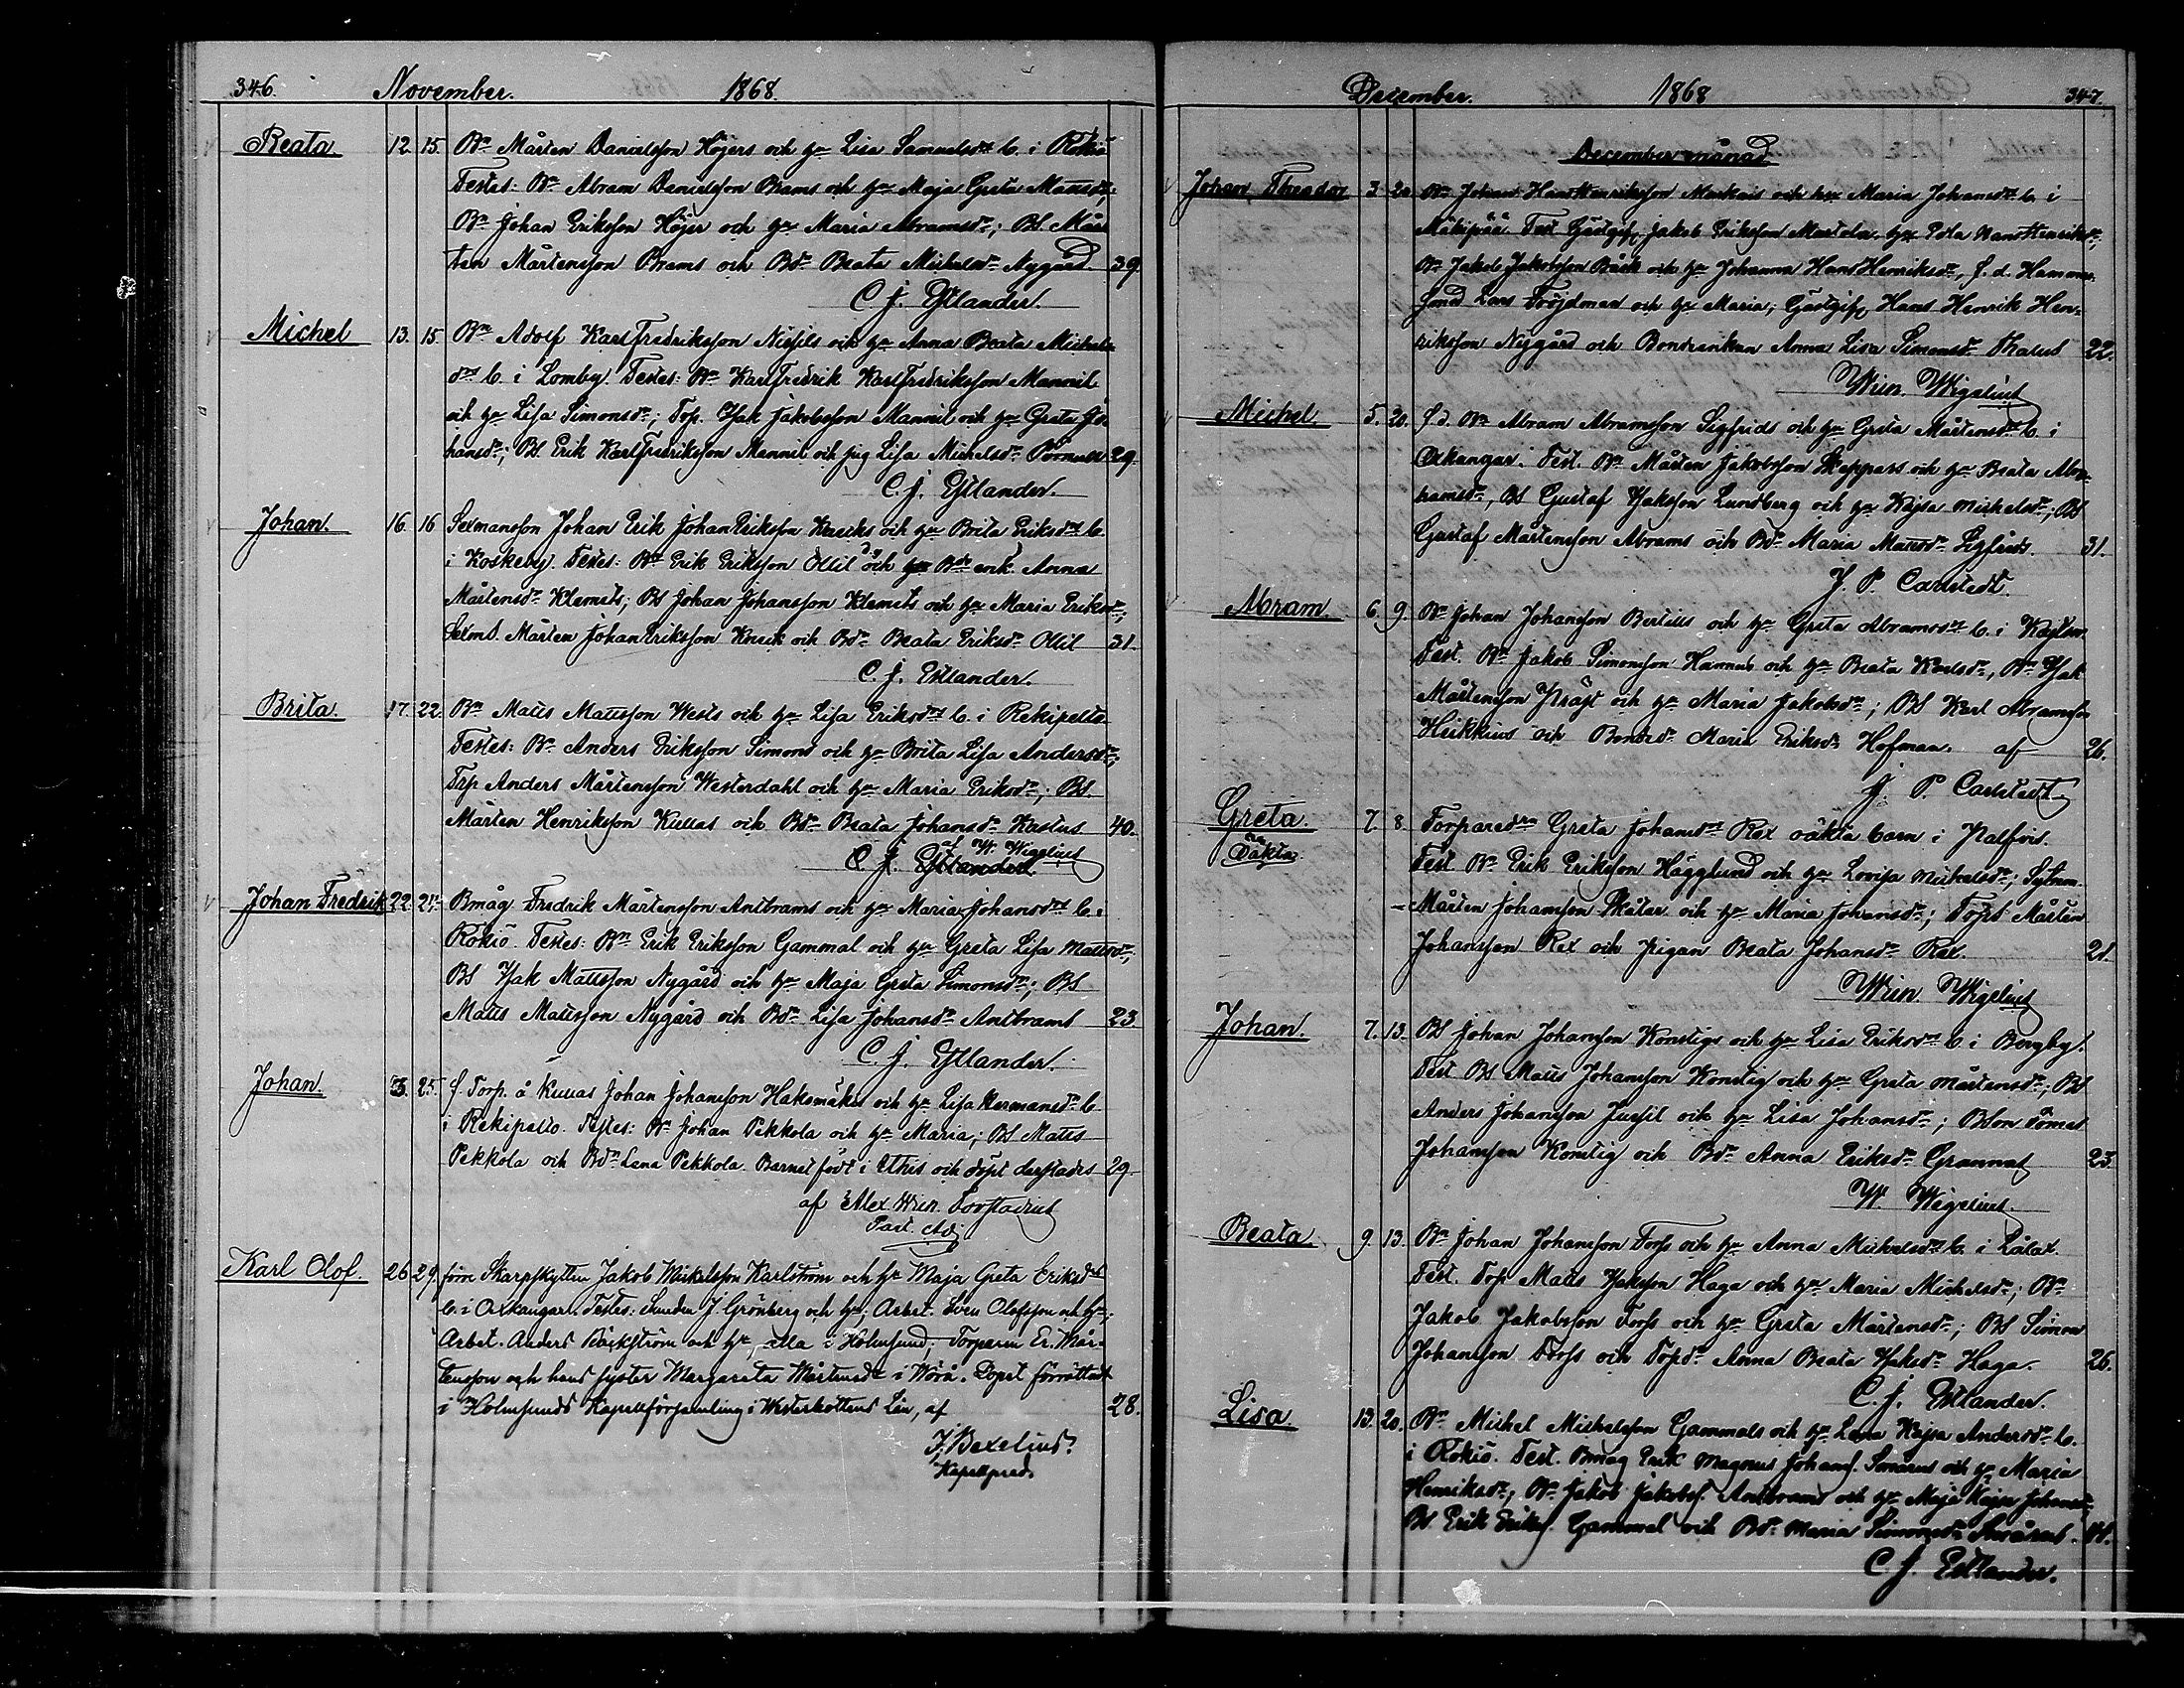 346. November. 1868.
Beata. 12. 15. Bn Mårten Danielsson Höjers och hu Lisa Samuelsdr b. i Rökiö
Testes: Bn Abram Danielsson Brams och hu Maja Greta Mattsdr;
Bn Johan Eriksson Höjer och hu Maria Abramsdr; BS. Mår
ten Mårtensson Brams och Bdr Beata Michelsdr Nygård. 39.
C. J. Estlander.
Michel 13. 15. Bn Adolf Karlfredriksson Nissils och hu Anna Beata Michels
drs b. i Lomby. Testes: Bn Karlfredrik Karlfredriksson Mannil
och hu Lisa Simonsdr; Torp. Isak Jakobsson Mannil och hu Greta Jo
hansdr; BS. Erik Karlfredriksson Mannil och pig Lisa Michelsdr 29.
C. J. Estlander.
Johan. 16. 16 Sexmansson Johan Erik JohanEriksson Knuiks och hu Brita Eriksdrs b.
i Koskeby. Testes: Bn Erik Eriksson Ollil och Bdr enk. Anna
Mårtensdr Klemets; BS Johan Johansson Klemets och hu Maria Eriksdr;
Sexms. Mårten JohanEriksson Knuik och Bdr Beata Eriksdr Ollil 31.
C. J. Estlander.
Brita. 17. 22. Bn Matts Mattsson Wests och hu Lisa Eriksdrs b. i Rekipelto
Testes: Bn Anders Eriksson Simons och hu Brita Lisa Andersdr;
Torp Anders Mårtensson Westerdahl och hu Maria Eriksdr; BS.
Mårten Henriksson Kullas och Bdr Beata Johansdr Kastus 40.
af W. Wigelius
C. J. Estlander.
Johan Fredrik 22. 24. Bmåg Fredrik Mårtensson Antbrams och hu Maria Johansdrs b. i
Rökiö. Testes: Bn Erik Eriksson Gammal och hu Greta Lisa Mattsdr;
BS Isak Mattsson Nygård och hu Maja Greta Simonsdr; BS
Matts Mattsson Nygård och Bdr Lisa Johansdr Antbrams 23.
C. J. Estlander.
Johan. 25. f. Torp. å Kullas Johan Johansson Hakomäkis och hu Lisa Hermansdr b.
i Rekipelto. Testes: Bn Johan Pekkola och hu Maria; BS Matts
Pekkola och Bdr Lena Pekkola. Barnet född i Ethis och döpt derstädes 29.
af Alex. Wilh. Forstadius
Past. Adj.
Karl Olof. 26. 29. förre Skarpskytten Jakob Mickelsson Karlström och hu Maja Greta Eriksdrs
b. i Oxkangar. Testes: J. Grönberg och hu; Arbet. Sven Olofsson och hu;
Arbet. Anders Bäckström och hu, alla i Holmsund; Torparen Er. Mår-
tensson och hans syster Margareta Mårtensdr i Wörå. Dopet förrättadt
i Holmsunds Kapellförsamling i Westerbottens Län, af 28.
J. Bexelius.
Kapellpred.
December. 1868 347.
December månad
Johan Theodor 3. 20. Bn Johan HansHenriksson Markais och hu Maria Johansdr b. i
Mäkipää. Test. Gästgif. Jakob Eriksson Martola, hu HansHenriksdr;
Bn Jakob Jakobsson Bäck och hu Johanna HansHenriksdr, f.d. Hamans
Lars Fröjdman och hu Maria; Gästgif. Hans Henrik Hen-
riksson Nygård och Bondeenkan Anna Lisa Simonsdr 22.
Wilh. Wigelius
Michel. 5. 20. f.d. Bn Abram Abramsson Sigfrids och hu Greta Mårtensdr b. i
Oxkangar. Test. Bn Mårten Jakobsson Skeppars och hu Beata Abra-
hamsdr, BS Gustaf Isaksson Lundberg och hu Kajsa Michelsdr; BS
Gustaf Mårtensson Abrams och Bdr Maria Mattsdr Sigfrids. 31.
J. P. Carlstedt.
Abram. 6. 9. Bn Johan Johansson Bertills och hu Greta Abramsdrs b. i
Test. Bn Jakob Simonsson Hannus och hu Beata Karlsdr, Bn Isak
Mårtensson Präst och hu Maria Jakobsdr; BS Karl Abramsson
Heikkius och Bondedr Maria Eriksdr Hofman. af 26.
J. P. Carlstedt
Greta. 7. 8. Torparedrn Greta Johansdrs Rex oäkta barn i Palfvis.
Oäkta. Test. Bn Erik Eriksson Hägglund och hu Lovisa Mickelsdr;
Mårten Johansson Skatar och hu Maria Johansdr; Torps Mårten
Johansson Rex och Pigan Beata Johansdr Rex. 21.
Wilh. Wigelius
Johan. 7. 13. BS Johan Johansson Konstigs och hu Lisa Eriksdrs b. i Bergby.
Test. BS Matts Johansson Konstig och hu Greta Mårtensdr; BS
Anders Johansson Jussil och hu Lisa Johansdr; BSon Tomas
Johansson Konstig och Bdr Anna Eriksdr Grannas 23.
W. Wigelius.
Beata. 9. 13. Bn Johan Johansson Forss och hu Anna Mickelsdrs b. i Lålax.
Test. Torp Matts Isaksson Haga och hu Maria Michelsdr; Bn
Jakob Jakobsson Forss och hu Greta Mårtensdr; BS Simon
Johansson Forss och Torpdr Anna Beata Isaksdr Haga. 26.
C. J. Estlander.
Lisa. 13. 20. Bn Michel Michelsson Gammals och hu Lena Kajsa Andersdr b.
i Rökiö. Test. Bmåg Erik Magnus Johans. Smårus och hu Maria
Henriksdr; Bn Jakob Jakobss. Antbrams och hu Maja Kajsa Johansdr,
BS. Erik Erikss. Gammal och Bdr Maria Simonsdr Smårus.
C. J. Estlander.